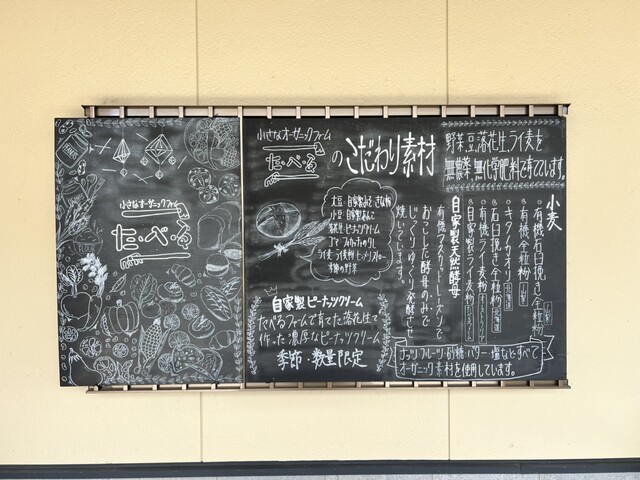 小さなオーガニックファーム
た・べ・る
小さなオーガニックファーム
た・べ・る
のこだわり素材
野菜、豆、落花生、ライ麦を
無農薬、無化学肥料で育てています。
大豆・自家製みそ きな粉
小豆・自家製あんこ
落花生・ピーナッツクリーム
ゴマ
季節の野菜
自家製ピーナッツクリーム
たべるファームで育てた落花生で
作った濃厚なピーナッツクリーム
季節・数量限定
小麦
有機石臼挽き全粒粉
有機全粒粉
キタノカオリ 北海道
石臼挽き全粒粉 北海道
有機ライ麦粉
自家製ライ麦粉
自家製天然酵母
有機フスラットレーズンで
おこしした酵母のみで
じっくりゆっくり発酵させ
焼いています。
ナッツ フルーツ・砂糖 バター・塩などすべて
オーガニック素材を使用しています。